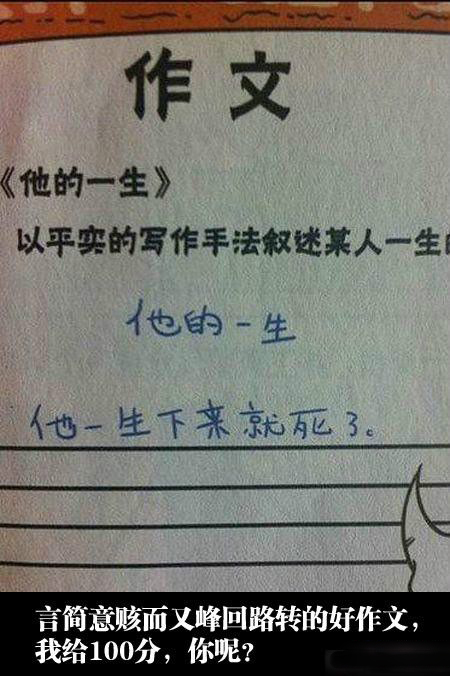 作文
《他的一生》
以平实的写作手法叙述某人一生的
他的一生
他一生下来就死了。
言简意赅而又峰回路转的好作文，
我给100分，你呢？